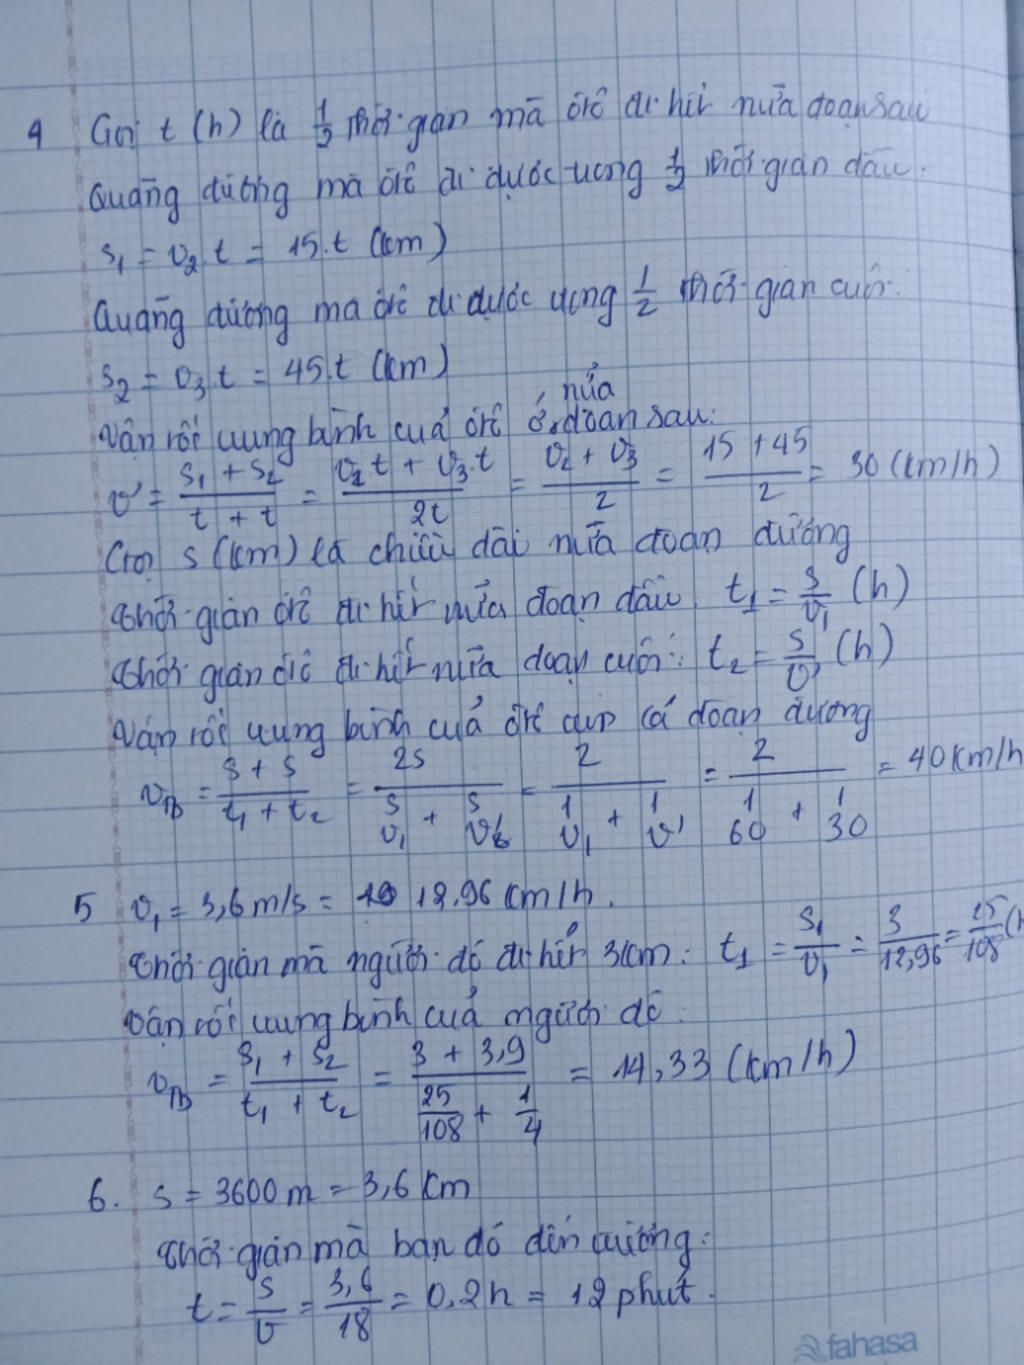 4 Gọi t (h) là 1/2 thời gian mà ôtô đi hết nửa đoạn sau
Quãng đường mà ôtô đi được trong 1/2 thời gian đầu:
s₁ = v₂.t = 15.t (km)
Quãng đường mà ôtô đi được trong 1/2 thời gian cuối:
s₂ = v₃.t = 45.t (km)
Vận tốc trung bình của ôtô ở nửa đoạn sau:
v' = (s₁ + s₂)/(t + t) = (v₂t + v₃.t)/2t = (v₂ + v₃)/2 = (15 + 45)/2 = 30 (km/h)
Gọi s (km) là chiều dài nửa đoạn đường
Thời gian ôtô đi hết nửa đoạn đầu: t₁ = s/v₁ (h)
Thời gian ôtô đi hết nửa đoạn cuối: t₂ = s/v' (h)
Vận tốc trung bình của ôtô trên cả đoạn đường
v_TB = (s + s)/(t₁ + t₂) = 2s/(s/v₁ + s/v') = 2/(1/v₁ + 1/v') = 2/(1/60 + 1/30) = 40 km/h
5 v₁ = 3,6 m/s = 12,96 km/h.
Thời gian mà người đó đi hết 3km: t₁ = s₁/v₁ = 3/12,96 = 25/108 (h
Vận tốc trung bình của người đó:
v_TB = (s₁ + s₂)/(t₁ + t₂) = (3 + 3,9)/(25/108 + 1/4) = 14,33 (km/h)
6. s = 3600 m = 3,6 km
Thời gian mà bạn đó đến trường:
t = s/v = 3,6/18 = 0,2h = 12 phút.
fahasa